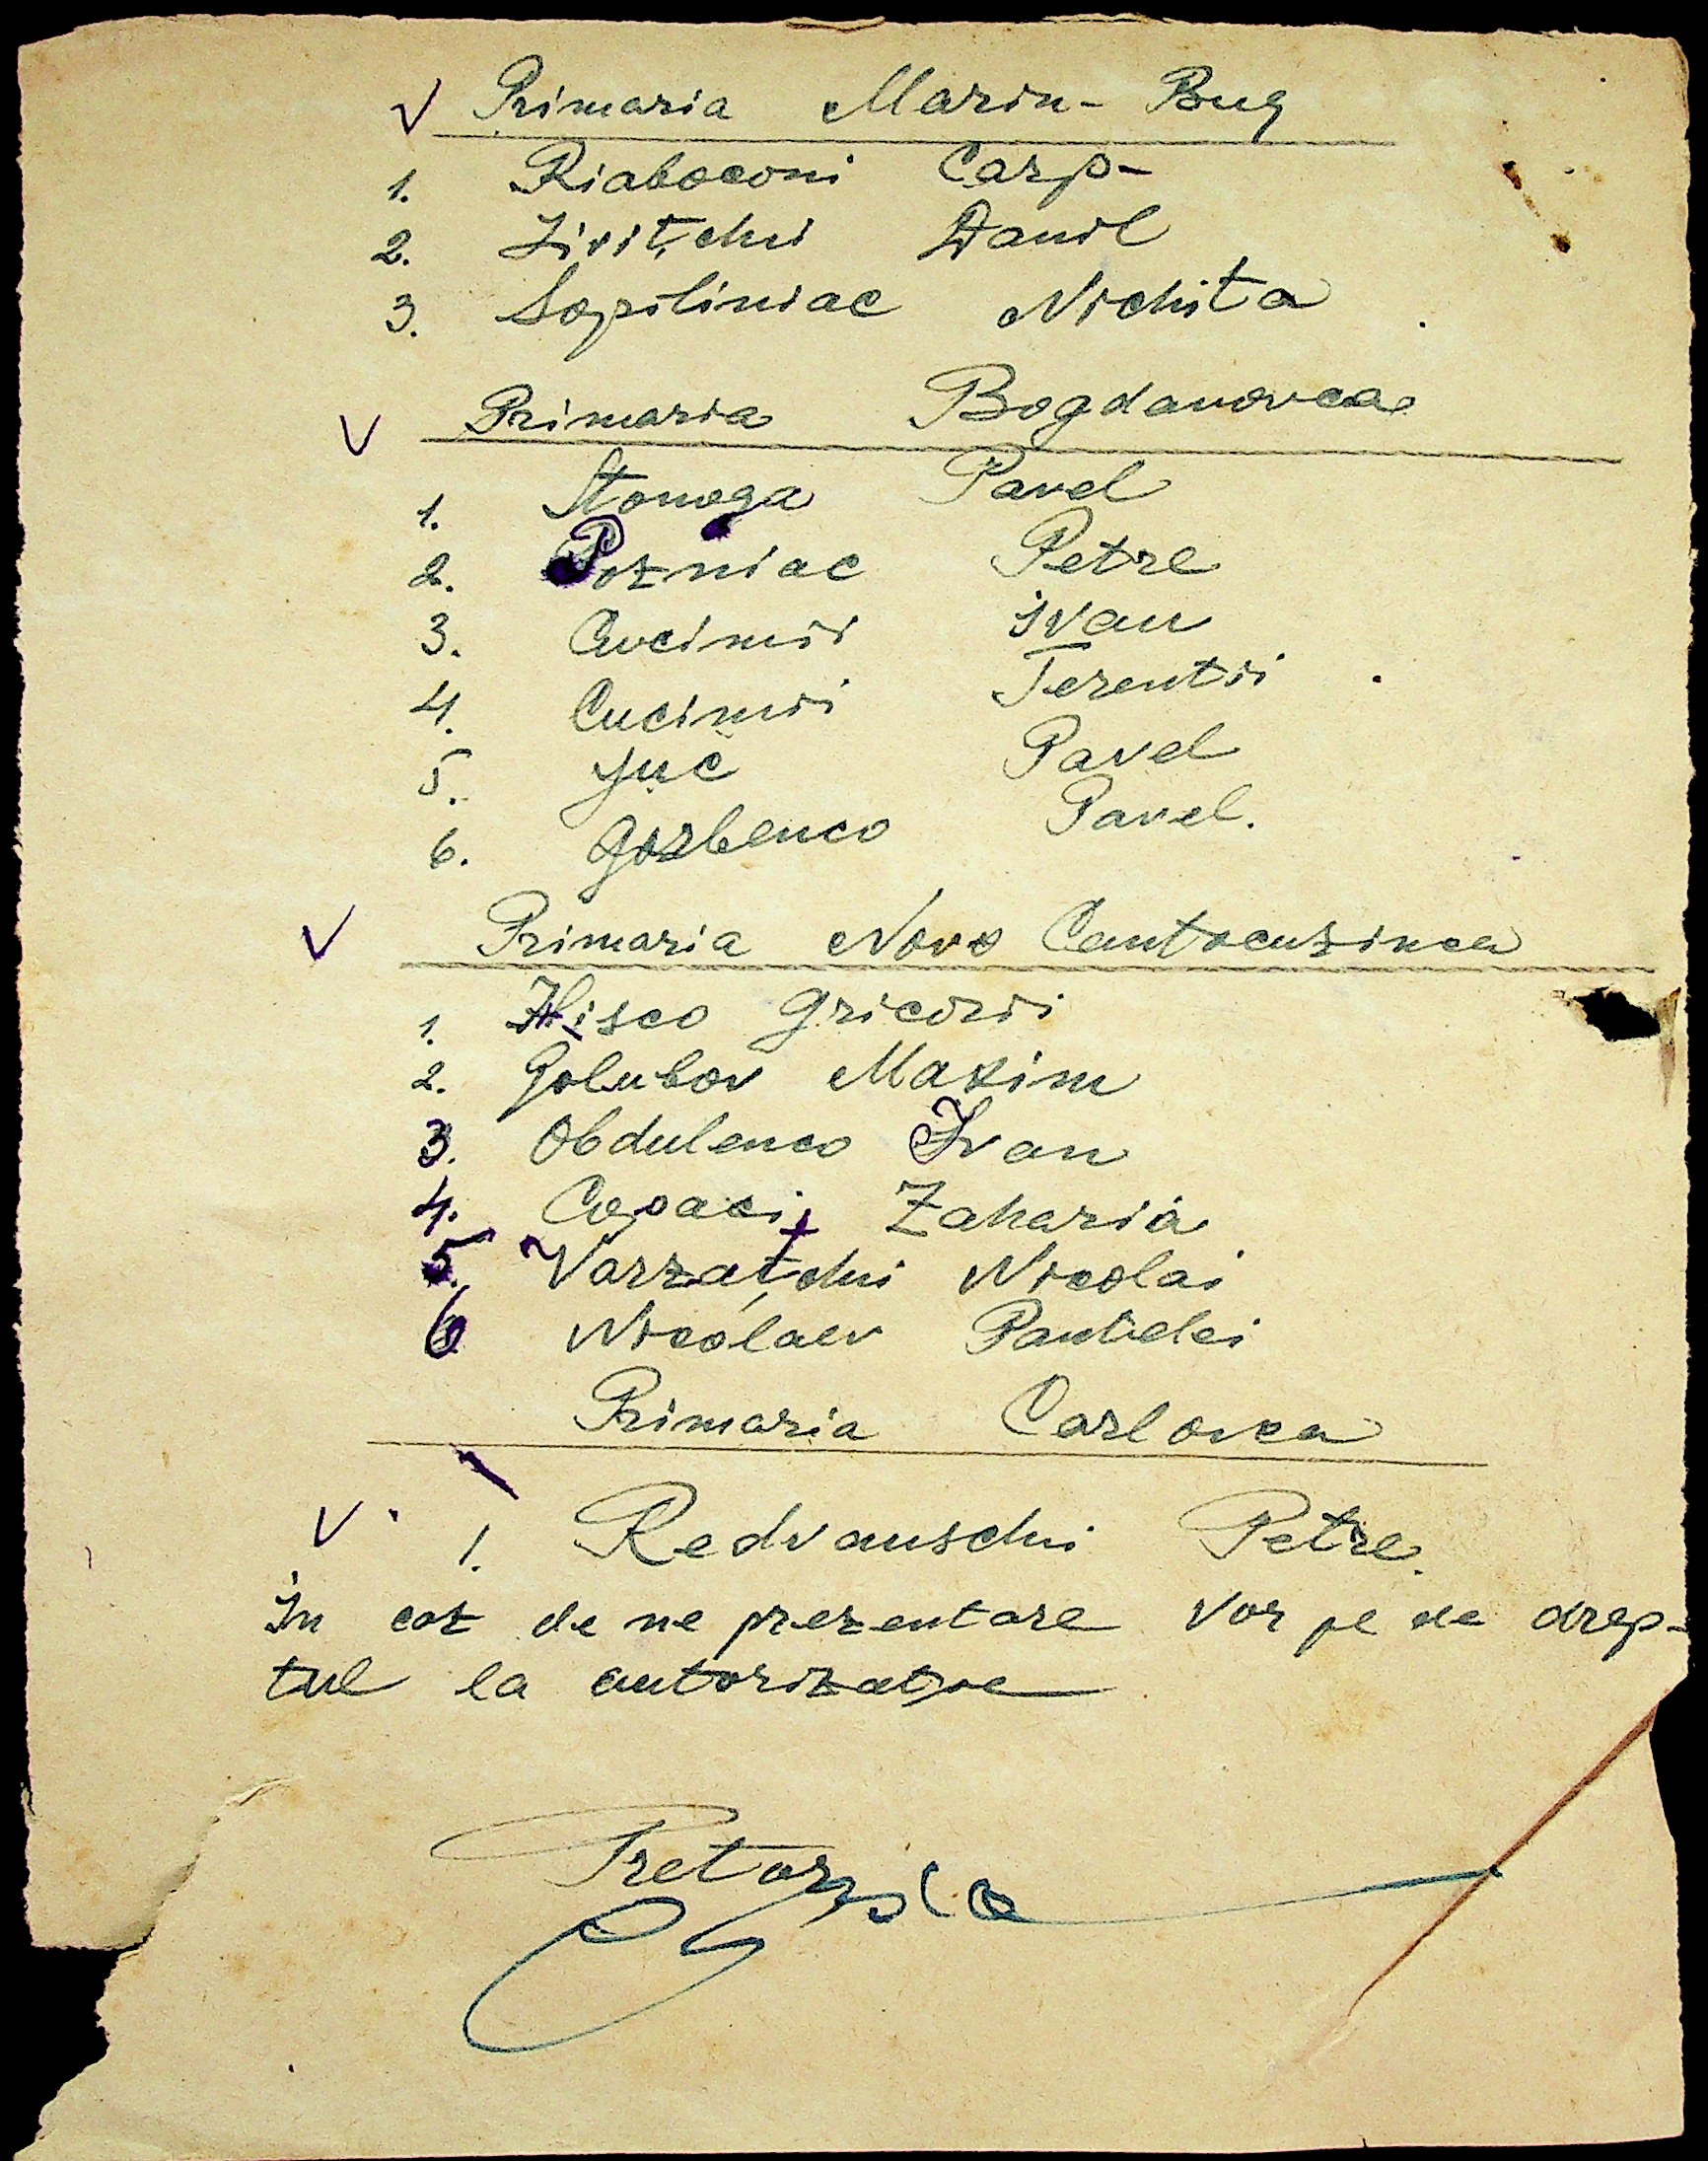 V Primaria Marin-Bug
1. Riaboconi Carp-
2. Livițchi Danil
3. Sopiliniac Nichita
V Primaria Bogdanovca
1. Stonoga Pavel
2. Pozniac Petre
3. Cucimii ivan
4. Cucimii Terentii
5. Juc Pavel
6. Gorbenco Pavel.
V Primaria Novo Cantacuzinca
1. Hisco Gricorii
2. Golubov Maxim
3. Obdulenco Ivan
4. Copaci Zaharia
5. Varzațchi Nicolai
6 Nicolaev Pantelei
Primaria Carlovca
V. 1. Redvanschi Petre.
În caz de ne prezentare vor pe de drep-
tul la autorizație
Pretor